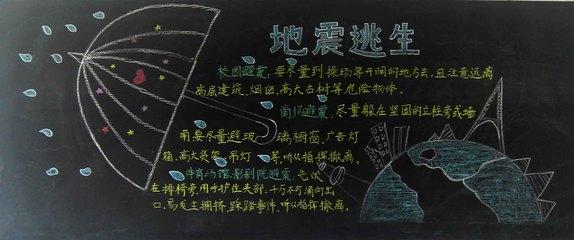 地震逃生
校园避震,要尽量到操场等开阔的地方去,且注意远离
高层建筑,烟囱,高大古树等危险物体。
商场避震,尽量躲在坚固的立柱旁或墙
角要尽量避玻璃橱窗,广告灯
箱,高大货架,吊灯等,听从指挥撤离。
体育场馆,影剧院避震 先伏
在排椅旁,用手护住头部,千万不可涌向出
口,易发生拥挤,踩踏事件,听从指挥撤离。